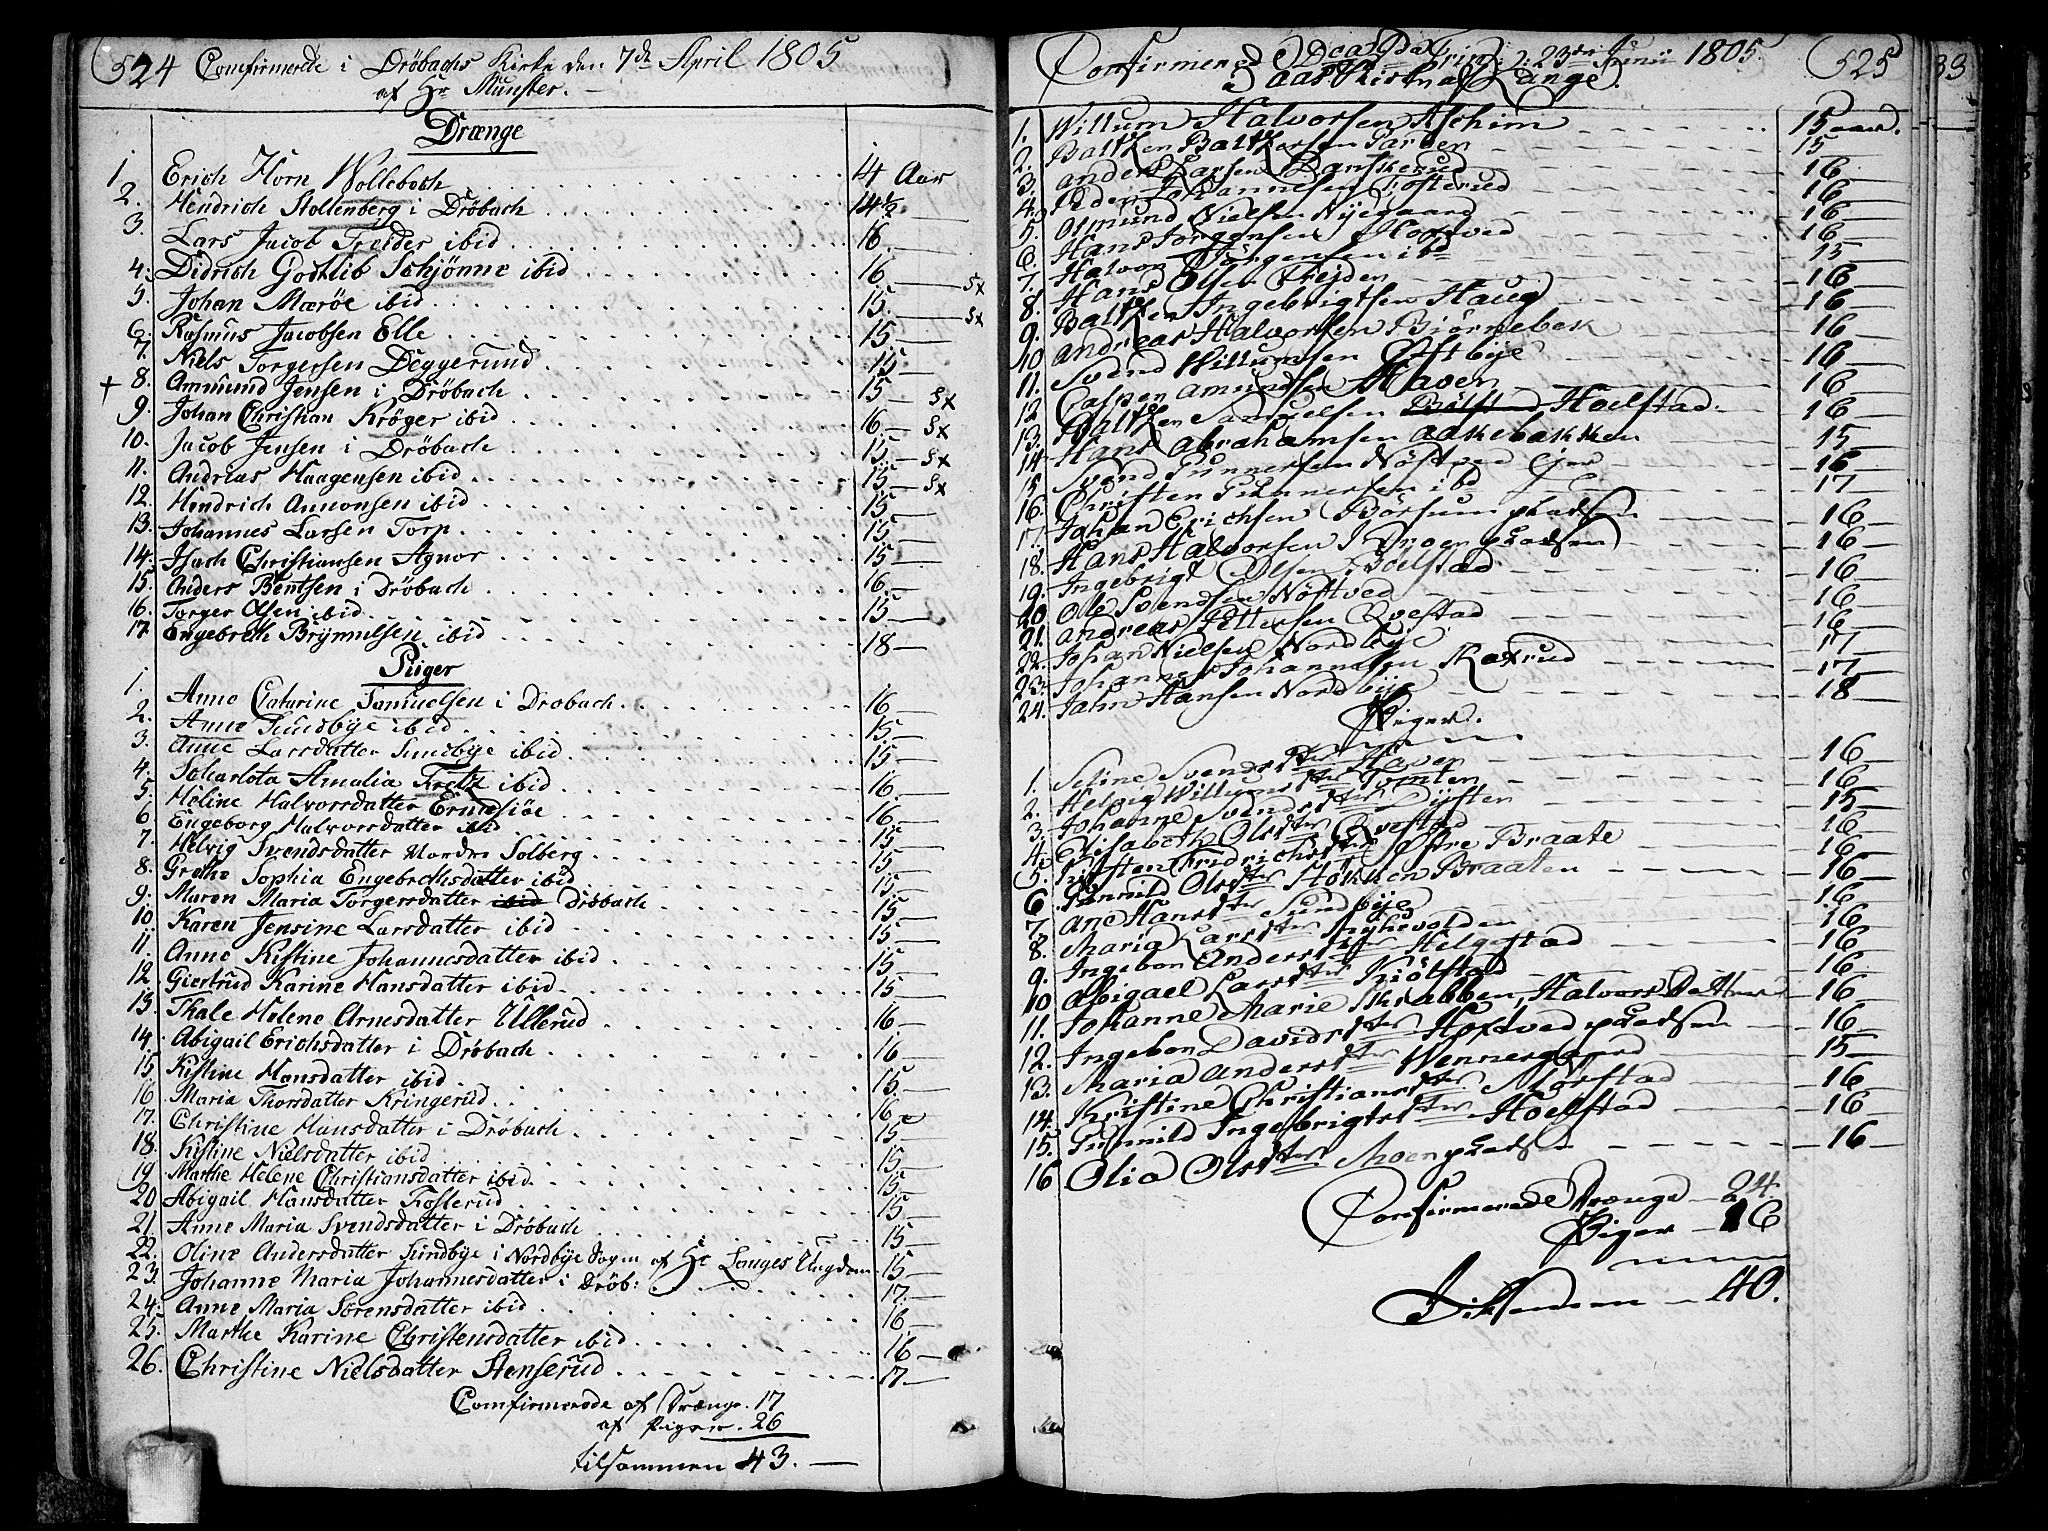 524 Comfirmerede i Dröbachs Kirke den 7de April 1805
af Hr Münster. —
Drænge
1. Erich Horn Wolleboch 14 Aar
2. Hendrich Stollenberg i Dröbach 14 1/2
3. Lars Jacob Treider ibid 16 —
4. Didrich Godtlib Schjönne ibid 16 — §x
5. Johan Mærøe ibid 15. — §x
6. Rasmus Jacobsen Elle 15 —
7. Niels Torgersen Deggerund 15 —
+ 8. Ammund Jensen i Dröbach 15 — §x
9. Johan Christian Kröger ibid 16 — §x
10. Jacob Jensen i Dröbach 15 — §x
11. Andreas Haagensen ibid 15 — §x
12. Hendrich Annonsen ibid 15 —
13. Johannes Larsen Torp 15 —
14. Isach Christiansen Agnor 15 —
15. Anders Bentsen i Dröbach 16 —
16. Torger Olsen ibid 15 —
17. Engebreth Brynnulsen ibid 18 —
Piger
1. Anne Catarine Samuelsen i Drobach 16 —
2. Anne Sundbye ibid 15. —
3. Anne Larsdatter Sundbye ibid 15 —
4. Scharlota Amalia ibid 16. —
5. Heline Halvorsdatter 16 —
6. Engeborg Halvorsdatter ibid 15 —
7. Helvig Svendsdatter Nordre Solberg 15 —
8. Grethe Sophia Engebrethsdatter ibid 15. —
9. Maren Maria Torgersdatter ibid Dröbach 15 —
10. Karen Jensine Larsdatter ibid 15 —
11. Anne Kistine Johannesdatter ibid 15 —
12 Giertrud Karine Hansdatter ibid 15 —
13. Thale Helene Arnesdatter Ullerud 16. —
14. Abigail Erichsdatter i Dröbach 16 —
15 Kistine Hansdatter ibid 15. —
16 Maria Thorsdatter Kringerud 16 —
17. Christine Hansdatter i Dröbach 15 —
18. Kistine Nielsdatter ibid 15 —
19. Marthe Helene Christiansdatter ibid 15 —
20. Abigail Hansdatter Froslerud 15 —
21. Anne Maria Svendsdatter i Dröbach 15 —
22. Oline Andersdatter Sundbye i Nordbye Sogn af Hr Langes Ungdom 15 —
23. Johanne Maria Johannesdatter i Dröb: 17. —
24. Anne Maria Sörensdatter ibid 16 —
25. Marthe Karine Christensdatter ibid 16 —
26. Christine Nielsdatter Stenserud 17 —
Comfirmerede af Drænge. 17
af Piger. 26
tilsammen 43. —
Confirmerede 23de Junii 1805. 525
Lange.
1. Willum Halvorsen Aschim 15 aar.
2. Baltzen Baltzersen 15 —
3. Anders Larsen Danskerud 16 —
4. Johannesen Fosterud 16 —
5. Amund Nielsen Nyegaard 16 —
6. Hans Jörgensen 16 —
7. Halvor Jörgensen ibd 15 —
8. Hans Olsen 16 —
9. Baltzen Ingebrigtsen Haug 16 —
10 Andreas Halvorsen Björnebek 16 —
11. Svend Willumsen Östbye 16 —
12 Casper Amundsen Haven 16 —
13. Baltzen Samuelsen Hoelstad 16 —
14 Hans Abrahamsen Aakebakken 15 —
15 Svend Gunnersen Nöstved 16 —
16. Christen Gunnersen ibd 17 —
17. Johan Erichsen Börsum pladsen 16 —
18. Hans Halvorsen pladsen 16 —
19. Ingebrigt Olsen 16 —
20. Ole Svendsen Nöstved 16 —
21. Andreas Pettersen Qvestad 16 —
22. Johan Nielsen Nordbye 17 —
23. Johannes Johannesen 17 —
24. Jahn Hansen Nordbye 18 —
Piger.
1. Seline Svendsdter Haven 16 —
2. Helvig Willumsdter Tomten 16 —
3. Johanne Svendsdter Dysten 15 —
4. Elisabeth Olsdter Qvestad 16 —
5. Kirsten Fridrichsdter Östre Braate 16 —
6 Gunnild Olsdter Stokken Braaten 16 —
7. Ane Hansdter Sundbye 16 —
8. Maria Larsdter 16 —
9. Ingebor Andersdter Helgestad 16 —
10 Abigael Larsdter Kjölstad 16 —
11. Johanne Marie Skrabben, Halvors Datter 16 —
12. Ingebor Davidsdter Hoftved pladsen 16 —
13. Maria Andersdter Wennersgaard 15 —
14. Kristine Christiansdter Morstad 16 —
15. Gunnild Ingebrigtsdter Hoelstad 16 —
16 Olia Olsdter Moen pladsen 16 —
Confirmerede Drænge — 24
Piger — 16
Tilsammen — 40.